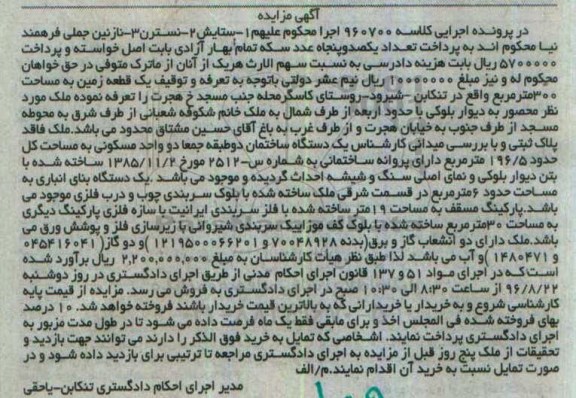 آگهی مزایده
در پرونده اجرایی کلاسه ۹۶۰۷۰۰ اجرا محکوم علیهم۱-ستایش۲-نسترن۳-نازنین جملی فرهمند
نیا محکوم اند به پرداخت تعداد یکصدوپنجاه عدد سکه تمام بهار آزادی بابت اصل خواسته و پرداخت
۵۷۰۰۰۰۰ ریال بابت هزینه دادرسی به نسبت سهم الارث هریک از آنان از ماترک متوفی در حق خواهان
محکوم له و نیز مبلغ ۱۰۰۰۰۰۰۰ ریال نیم عشر دولتی باتوجه به تعرفه و توقیف یک قطعه زمین به مساحت
۳۰۰مترمربع واقع در تنکابن -شیرود-روستای کاسگرمحله جنب مسجد خ هجرت را تعرفه نموده ملک مورد
نظر محصور به دیوار بلوکی با حدود اربعه از طرف شمال به ملک خانم شکوفه شعبانی از طرف شرق به محوطه
مسجد از طرف جنوب به خیابان هجرت و از طرف غرب به باغ آقای حسین مشتاق محدود می باشد.ملک فاقد
پلاک ثبتی و با بررسی میدانی کارشناس یک دستگاه ساختمان دوطبقه جمعا دو واحد مسکونی به مساحت کل
حدود ۱۹۶/۵ مترمربع دارای پروانه ساختمانی به شماره س-۲۵۱۲ مورخ ۱۳۸۵/۱۱/۲ ساخته شده با
بتن دیوار بلوکی و نمای اصلی سنگ و شیشه احداث گردیده و موجود می باشد .یک دستگاه بنای انباری به
مساحت حدود ۶مترمربع در قسمت شرقی ملک ساخته شده با بلوک سربندی چوب و درب فلزی موجود می
باشد.پارکینگ مسقف به مساحت ۱۹متر ساخته شده با فلز سربندی ایرانیت با سازه فلزی پارکینگ دیگری
به مساحت ۳۰مترمربع ساخته شده با بلوک کف موزاییک سربندی شیروانی با زیرسازی فلز و پوشش ورق می
باشد.ملک دارای دو انشعاب گاز و برق(بدنه ۷۰۰۴۸۹۲۸ و ۱۲۱۹۵۰۰۰۶۶۲۰۱ )و دو گاز( ۰۴۵۴۱۶۰۴۱
و ۱۴۸۰۴۷۱ )و آب می باشد لذا طبق نظر هیأت کارشناسان به مبلغ ۲,۲۰۰,۰۰۰,۰۰۰ ریال برآورد شده
است که در اجرای مواد ۵۱ و ۱۳۷ قانون اجرای احکام مدنی از طریق اجرای دادگستری در روز دوشنبه
۹۶/۸/۲۲ از ساعت ۸:۳۰ الی ۱۰:۳۰ صبح در اجرای دادگستری به فروش می رسد. مزایده از قیمت پایه
کارشناسی شروع و به خریدار یا خریدارانی که به بالاترین قیمت خریدار باشند فروخته خواهد شد. ۱۰ درصد
بهای فروخته شده فی المجلس اخذ و برای مابقی فقط یک ماه فرصت داده می شود تا در طول مدت مزبور به
اجرای دادگستری پرداخت نمایند. اشخاصی که تمایل به خرید فوق الذکر را دارند می توانند جهت بازدید و
تحقیقات از ملک پنج روز قبل از مزایده به اجرای دادگستری مراجعه تا ترتیبی برای بازدید داده شود و در
صورت تمایل نسبت به خرید آن اقدام نمایند.م/الف
مدیر اجرای احکام دادگستری تنکابن-یاحقی